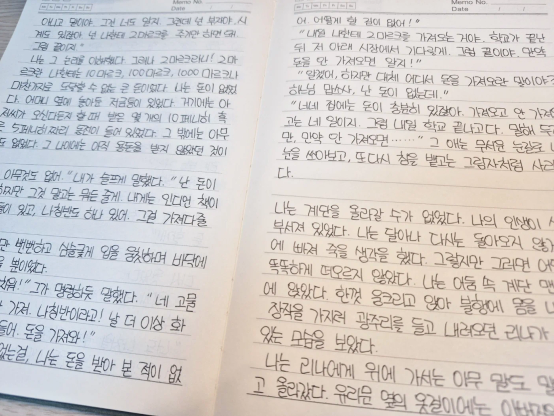 Memo No.
Date
아니고 말이야. 그건 너도 알지. 그런데 넌 부자야. 시
계도 있잖아. 넌 나한테 2마르크를 주기만 하면 돼.
그럼 끝이지."
나는 그 논리를 이해했다. 그러나 2마르크라니! 2마
르크란 나한테는 10마르크, 100마르크, 1000마르크나
마찬가지로 도달할 수 없는 큰 돈이었다. 나는 돈이 없었
다. 어머니 옆에 놓아둔 저금통이 있었다. 거기에는 아
저씨가 오신다든지 할 때 받은 몇 개의 10페니히
5페니히짜리 동전이 들어 있었다. 그 밖에는 아무
도 없었다. 그 나이에는 아직 용돈을 받지 않았던 것이
아무것도 없어." 내가 슬프게 말했다. "난 돈이
하지만 그것 말고는 뭐든 줄게. 내게는 인디언 책이
들이 있고, 나침반도 하나 있어. 그걸 가져다줄
만 뻔뻔하고 심술궂게 입을 움찔하며 바닥에
을 뱉었다.
그가 명령하듯 말했다. "네 고물
가져. 나침반이라고! 날 더 이상 화
들어. 돈을 가져와!"
없는걸, 나는 돈을 받아 본 적이 없
Memo No.
Date
어. 어떻게 할 길이 없어!"
"내일 나한테 2마르크를 가져오는 거야. 학교가 끝난
뒤 저 아래 시장에서 기다릴게. 그럼 끝이야. 만약
돈을 안 가져오면 알지!"
"알겠어, 하지만 대체 어디서 돈을 가져오란 말이야?
하느님 맙소사, 난 돈이 없는데."
"네네 집에는 돈이 충분히 있잖아. 가져오고 안 가져
고는 네 일이지. 그럼 내일 학교 끝나고다. 말해 두
만, 만약 안 가져오면……" 그 애는 무서운 눈길로 내
눈을 쏘아보고, 또다시 침을 뱉고는 그림자처럼 사라
다.
나는 계단을 올라갈 수가 없었다. 나의 인생이 산
부서져 있었다. 나는 달아나 다시는 돌아오지 않
에 빠져 죽을 생각을 했다. 그렇지만 그러면 어
똑똑하게 떠오르지 않았다. 나는 어둠 속 계단 맨
에 앉았다. 한껏 옹크리고 앉아 불행에 몸을 내
장작을 가지러 광주리를 들고 내려오던 리나가
있는 모습을 보았다.
나는 리나에게 위에 가서는 아무 말도 말
고 올라갔다. 유리문 옆의 옷걸이에는 아버지